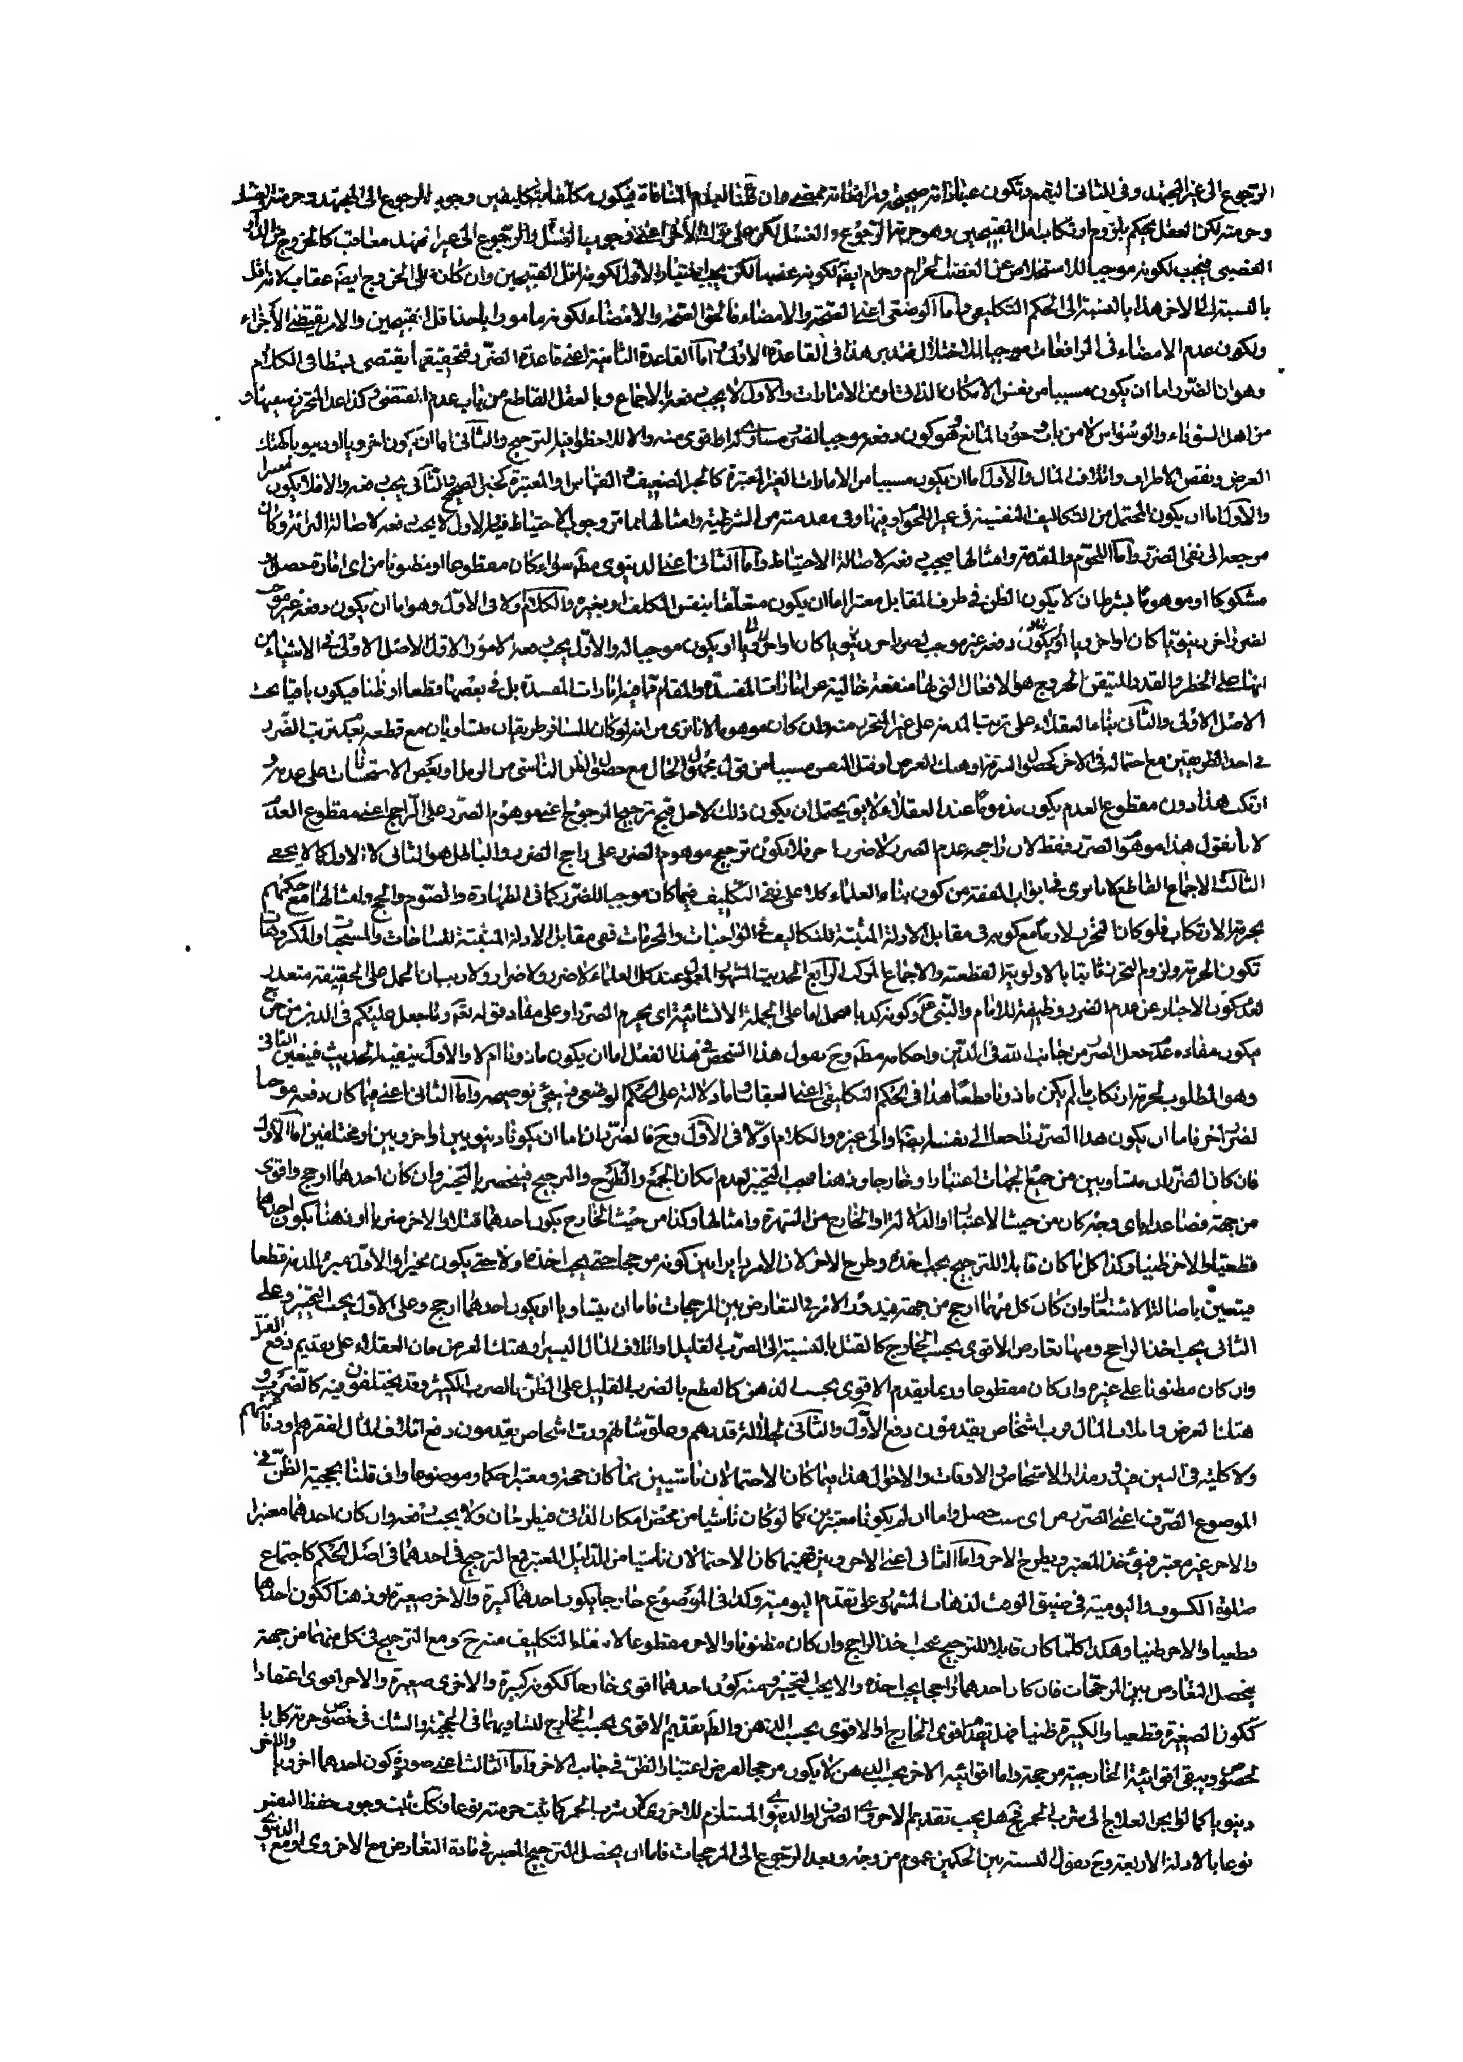 الرجوع الى غير المجتهد وفى الثانى التيمم وتكون عباداته صحيحة ومرافعاته ممضى وان قلنا بعدم المنافاة فيكون مكلفا بتكليفين وجوب الرجوع الى المجتهد وحرمة الغسل
وحرمته لكن العقل يحكم بلزوم ارتكاب اقل القبيحين وهو حرمة الرجوع والغسل لكن على ترك الاخر اعنى وجوب الغسل والرجوع الى غير المجتهد معاقب كالخروج عن الدار
الغصبى فيجب لكونه موجبا للاستخلاص عن الغصب الحرام وحرام ايضا لكونه غصبا لكن يجب اختيار الاول لكونه اقل القبيحين وان كان على الخروج ايضا عقاب لانه اقل
بالنسبة الى الاخر هذا بالنسبة الى الحكم التكليفى واما الوضعى اعنى الصحة والامضاء فالحق الصحة والامضاء لكونه مامورا باخذ اقل القبيحين والامر يقتضى الاجزاء
ويكون عدم الامضاء فى المرافعات موجبا للاختلال فتدبر هذا فى القاعدة الاولى واما القاعدة الثانية اعنى قاعدة الضرر فتحقيقها يقتضى بسطا فى الكلام
وهو ان الضرر اما ان يكون مسببا من نفس الامكان الذاتى او من الامارات والاول لا يجب دفعه بالاجماع وبالعقل القاطع من باب عدم المقتضى وكذا عد المتحرز سفيها و
من اهل السوداء والوسواس لا من باب وجود المانع وهو كون دفعه موجبا لضرر مساوى له او اقوى منه والا للاحظوا فيه الترجيح والثانى اما ان يكون اخرويا او دنيويا كهتك
العرض ونقص الاطراف واتلاف المال والاول اما ان يكون مسببا من الامارات الغير المعتبرة كالخبر الضعيف والقياس او المعتبرة كخبر الصحيح والثانى يجب دفعه والا فلا يكون
والاول اما ان يكون المحتمل من التكاليف النفسية فى غير اللحوم او فيها وفى مقدمته من الشرطية وامثالها مما مر وجوب الاحتياط فيه الاول لا يجب دفعه لاصالة البرائة وكان
مرجعه الى نفى الضرر واما اللحوم والمقدمة وامثالها فيجب دفعه لاصالة الاحتياط واما الثانى اعنى الدنيوى مطلقا سواء كان مقطوعا او مظنونا من اى امارة حصل او
مشكوكا او موهوما بشرط ان لا يكون الظن فى طرف المقابل معتبرا اما ان يكون متعلقا بنفس المكلف او بغيره والكلام ولا فى الاول وهو اما ان يكون دفعه غير موجب
لضرر اخر دنيويا كان او اخرويا او يكون دفعه غير موجب لضرر اخر دنيويا كان او اخرويا او يكون موجبا له والاول يجب دفعه لامور الاول الاصل الاولى فى الاشياء
انها على الحظر والقدر المتيقن الخروج هو الافعال التى لها منفعة خالية عن امارات المفسدة والمقام مما فيه امارات المفسدة بل فى بعضها قطعا او ظنا فيكون باقيا تحت
الاصل الاولى والثانى بناء العقلاء على ترتيب المذمة على غير المتحرز منه وان كان موهوما الا ترى من انه لو كان للمسافر طريقان متساويان مع قطعه بعدم ترتب الضرر
فى احد الطريقين مع احتماله فى الاخر كحصول السرقة او هتك العرض او قتل النفس مسببا من قول مجهول الحال مع حصول الظن الناشى من الرمل او بعض الاستحسانات على عدمه و
ارتكب هذا دون مقطوع العدم يكون مذموما عند العقلاء ولا يق يحتمل ان يكون ذلك لاجل قبح ترجيح المرجوح اعنى موهوم الضرر على الراجح اعنى مقطوع العدم
لانا نقول هذا موهوم الضرر فقط لا ان راجحه عدم الضرر لا ضررا اخر فلا يكون ترجيح موهوم الضرر على راجح الضرر والباطل هو الثانى لا الاول كما لا يخفى
الثالث الاجماع القاطع كما نرى فى ابواب الفقه من كون بناء العلماء كلا على نفى التكليف فيما كان موجبا للضرر كما فى الطهارة والصوم والحج وامثالها مع حكمهم
بحرمة الارتكاب فلو كان التحرز لازما مع كونه فى مقابل الادلة المثبتة للتكاليف فى الواجبات والمحرمات ففى مقابل الادلة المثبتة للمباحات والمستحبات والمكروهات
تكون الحرمة ولزوم التحرز ثابتا بالاولوية القطعية والاجماع المركب الرابع الحديث المشهور المعمول عند كل العلماء لا ضرر ولا ضرار ولا ريب ان الحمل على الحقيقة متعذر
لعدم كون الاخبار عن عدم الضرر وظيفة للامام والنبى ع وكونه كذبا محمل اما على الجملة الانشائية اى يحرم الضرر او على مفاد قوله تعالى وما جعل عليكم فى الدين من حرج
فيكون مفاده عدم جعل الضرر من جانب الله فى الدين واحكامه مطلقا وح نقول هذا الشخص فى هذا الفعل اما ان يكون ماذونا ام لا والاول ينفيه الحديث فيتعين الثانى
وهو المطلوب لحرمة ارتكاب ما لم يكن ماذونا قطعا هذا فى الحكم التكليفى اعنى العقاب واما دلالته على الحكم الوضعى فسيجئ توضيحه واما الثانى اعنى فيما كان دفعه موجبا
لضرر اخر فاما ان يكون هذا الضرر راجعا الى نفسه ايضا او الى غيره والكلام اولا فى الاول وح فالضرران اما ان يكونا دنيويين او اخرويين او مختلفين اما الاول
فان كان الضرران متساويين من جميع الجهات اعتبارا وخارجا وذهنا فيجب التخيير لعدم امكان الجمع والطرح والترجيح فينحصر بالتخيير وان كان احدهما ارجح واقوى
من جهة فصاعدا باى وجه كان من حيث الاعتبار او الدلالة او الخارج من الشهرة وامثالها وكذا من حيث الخارج بكون احدهما قتلا والاخر ضربا او ذهنا بكون احدهما
قطعيا والاخر ظنيا وكذا كل ما كان قابلا للترجيح يجب اخذه وطرح الاخر لان الامر دائر بين كونه مرجحا حتى يجب اخذه ولا حتى يكون مخيرا والاول مبرئ للذمة قطعا
فيتعين باصالة الاشتغال وان كان كل منهما ارجح من جهة فيدور الامر فى التعارض بين المرجحات فاما ان يتساويا او يكون احدهما ارجح وعلى الاول يجب التخيير وعلى
الثانى يجب اخذ الراجح ومنها تعارض الاقوى بحسب الخارج كالقتل بالنسبة الى الضرب القليل او اتلاف المال اليسير وهتك العرض فان العقلاء على تقديم دفع القتل
وان كان مظنونا على غيره وان كان مقطوعا وربما يقدم الاقوى بحسب الذهن كالقطع بالضرب القليل على الظن بالضرب الكثير وقد يختلفون فيه كالضرب و
هتك العرض واتلاف المال فرب اشخاص يقدمون دفع الاول والثانى لجلالة قدرهم وعلو شانهم ورب اشخاص يقدمون دفع اتلاف المال لفقرهم ودنائتهم
ولا كلية فى البين فيدور مدار الاشخاص والاوقات والاحوال هذا فيما كان الاحتمالان ناشيين مما كان حجة ومعتبرا حكما وموضوعا وان قلنا بحجية الظن فى
الموضوع الصرف اعنى الضرر من اى سبب حصل واما ان لم يكونا معتبرين كما لو كان ناشيا من محض امكان الذاتى فيطرحان ولا يجب دفعه وان كان احدهما معتبرا
والاخر غير معتبر فيؤخذ المعتبر ويطرح الاخر واما الثانى اعنى الاخرويين فهيهنا كان الاحتمالان ناشيا من الدليل المعتبر فمع الترجيح فى احدهما فى اصل الحكم كاجتماع
صلوة الكسوف واليومية فى ضيق الوقت لذهاب المشهور على تقدم اليومية وكذا فى الموضوع خارجا بكون احدهما كبيرة والاخر صغيرة او ذهنا ككون احدهما
قطعيا والاخر ظنيا وهكذا كلما كان قابلا للترجيح يجب اخذ الراجح وان كان مظنونا والاخر مقطوعا لانتفاء التكليف منه ح ومع الترجيح فى كل منهما من جهة
يحصل التعارض بين المرجحات فان كان احدهما راجحا يجب اخذه والا يجب التخيير ومنه كون احدهما اقوى خارجا ككونه كبيرة والاخرى صغيرة والاخر اقوى اعتقادا
ككون الصغيرة قطعيا والكبيرة ظنيا فهل يقدم اقوى الخارج او الاقوى بحسب الذهن والظاهر تقديم الاقوى بحسب الخارج لتساويهما فى الحجية والشك فى خصوص حرمة كل بالخصوص
ويبقى اقوائية الخارجية من جهة واما اقوائية الاخر بحسب الذهن لا يكون مرجحا لفرض اعتبار الظن فى جانب الاخر واما الثالث اعنى صورة كون احدهما اخرويا والاخر
دنيويا كما لو انجر العلاج الى شرب الخمر فح هل يجب تقديم الاخروى الصرف او الدنيوى المستلزم للاخروى لان شرب الخمر كما ثبت حرمته نوعا فكك ثبت وجوب حفظ النفس
نوعا بالادلة الاربعة وح نقول النسبة بين الحكمين عموم من وجه وبعد الرجوع الى المرجحات فاما ان يحصل الترجيح المعتبر فى مادة التعارض مع الاخروى او مع الدنيوى